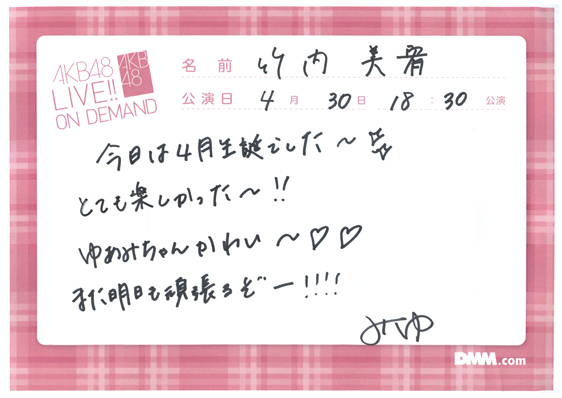 AKB48
LIVE!!
ON DEMAND
AKB
48
名前 竹内 美宥
公演日 4月30日 18:30 公演
今日は4月生誕でした〜
とても楽しかった〜!!
ゆあみちゃんかわい〜♡♡
また明日も頑張るぞー!!!!
みゆ
DMM.com